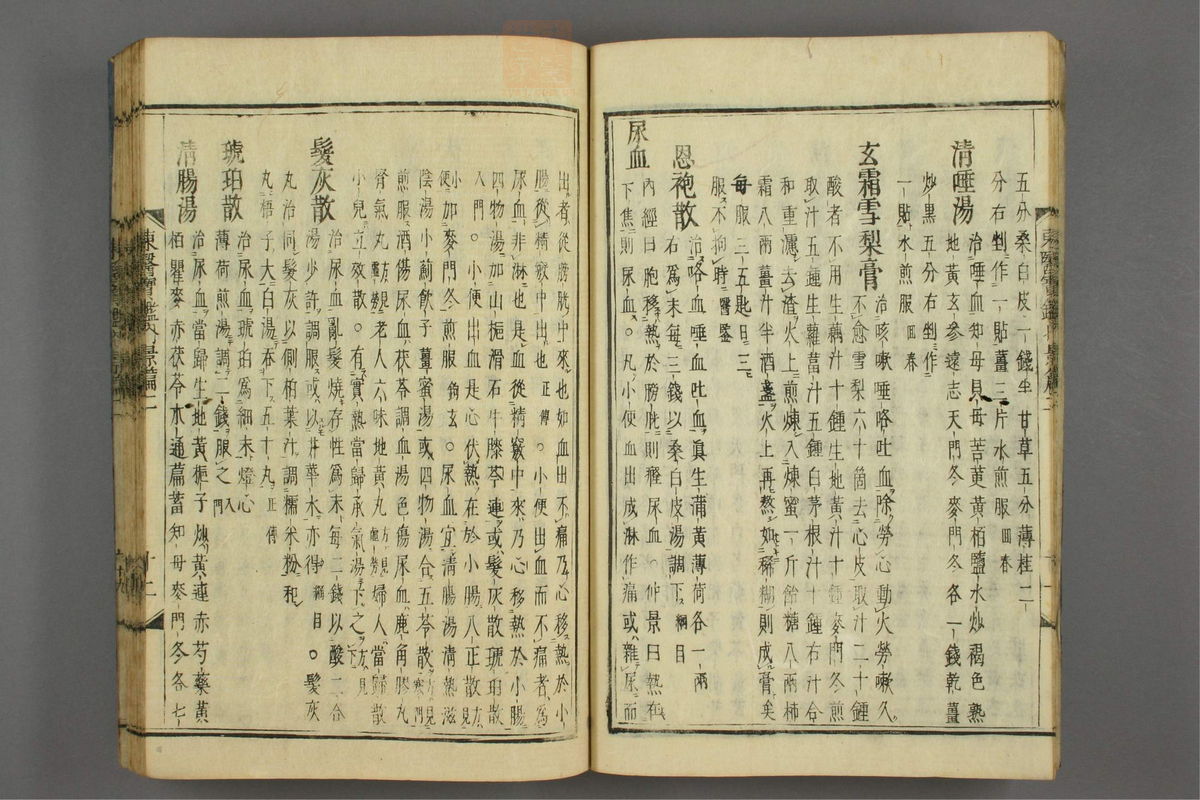 五分桑白皮一錢半甘草五分薄桂二
分右剉作一貼薑三片水煎服回春
清唾湯 治唾血知母貝母苦莄黄栢鹽水炒褐色熟
地黄玄参遠志天門冬麥門冬各一錢乾薑
炒黒五分右剉作
一貼水煎服回春
玄霜雪梨膏 治咳嗽唾咯吐血除勞心動火勞嗽久
不愈雪梨六十箇去心皮取汁二十鍾
酸者不用生藕汁十鍾生地黄汁十鍾麥門冬煎
取汁五鍾生蘿葍汁五鍾白茅根汁十鍾右汁合
和重濾去渣火上煎煉入煉蜜一斤飴糖八兩柿
霜八兩薑汁半酒盞火上再熬如稀糊則成膏矣
每服三五匙日三
服不拘時醫鑒
恩袍散 治咯血唾血吐血眞生蒲黄薄荷各一兩
右爲末每三錢以桑白皮湯調下綱目
尿血 內經曰胞移熱於膀胱則癃尿血○仲景曰熱在
下焦則尿血○凡小便血出成淋作痛或雜尿而
出者從膀胱中來也如血出不痛乃心移熱於小
腸從精竅中出也正傳○小便出血而不痛者爲
尿血非淋也是血從精竅中來乃心移熱於小腸
四物湯加山梔滑石牛膝芩連或髮灰散琥珀散
入門○小便出血是心伏熱在於小腸八正散方見
小便加麥門冬煎服鉤玄○尿血宜清腸湯清熱滋
陰湯小薊飮子薑蜜湯或四物湯合五苓散方見寒門
煎服酒傷尿血茯苓調血湯色傷尿血鹿角膠丸
腎氣丸方見虚勞老人六味地黄丸方見虚勞婦人當歸散
小兒立效散○有實熱當歸承氣湯下之方見下
髮灰散 治尿血亂髮燒存性爲末每二錢以酸二合
湯少許調服或以井華水亦得綱目○髮灰
丸治同髮灰以側栢葉汁調糯米粉和
丸梧子大白湯呑下五十丸正傳
琥珀散 治尿血琥珀爲細末燈心
薄荷煎湯調二錢服之入門
清腸湯 治尿血當歸生地黄梔子炒黄連赤芍藥黄
栢瞿麥赤茯苓木通萹蓄知母麥門冬各七
東醫寶鑑内景篇二
十二
東醫寶鑑内景篇二